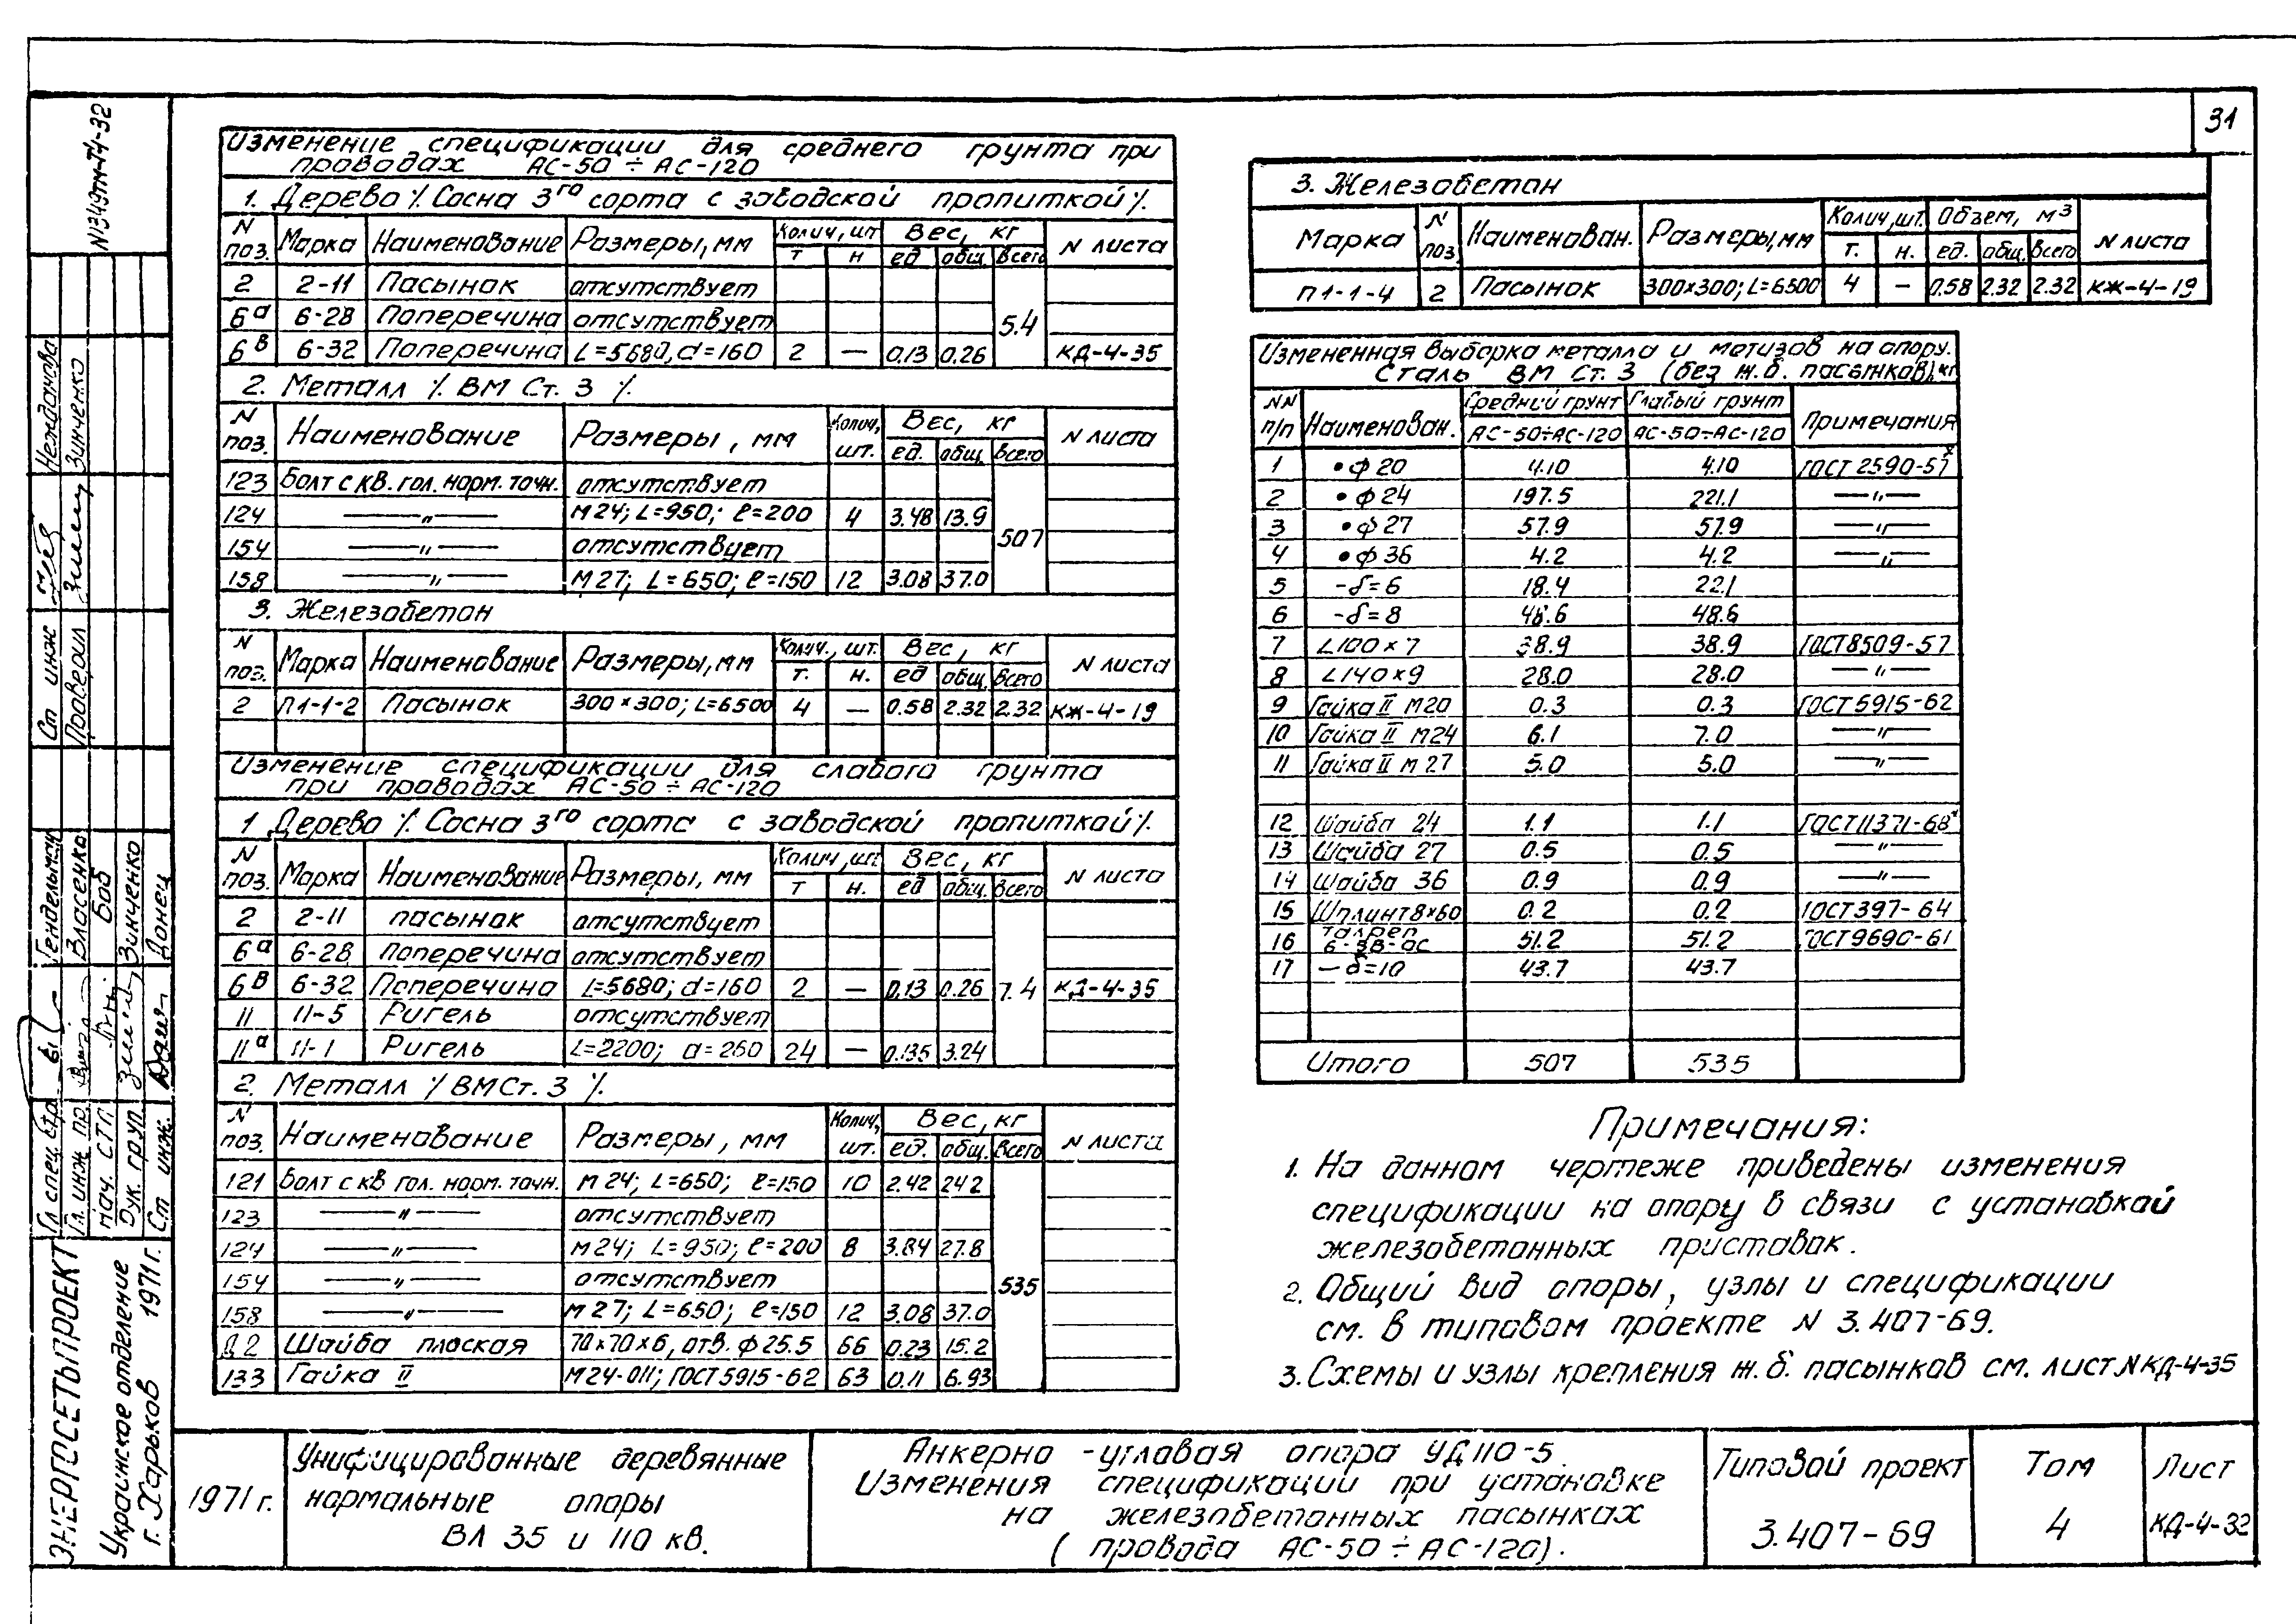 31
N1349тм-Т4-32
Изменение спецификации для среднего грунта при
проводах АС-50 ÷ АС-120
1. Дерево ٪ Сосна 3го сорта с заводской пропиткой ٪.
N поз. Марка Наименование Размеры, мм Колич, шт Вес, кг N листа
т н ед общ. Всего
2 2-11 Пасынок отсутствует
6а 6-28 Поперечина отсутствует 5.4
6в 6-32 Поперечина L=5680, d=160 2 — 0.13 0.26 КД-4-35
2. Металл ٪ ВМ Ст. 3 ٪.
N поз. Наименование Размеры, мм Колич, шт. Вес, кг N листа
ед. общ. Всего
123 Болт с кв. гол. норм. точн. отсутствует
124 —〃— М24; L=950; ℓ=200 4 3.48 13.9
154 —〃— отсутствует 507
158 —〃— М27; L=650; ℓ=150 12 3.08 37.0
3. Железобетон
N поз. Марка Наименование Размеры, мм Колич., шт. Вес, кг N листа
т. н. ед общ. Всего
2 П1-1-2 Пасынок 300×300; L=6500 4 — 0.58 2.32 2.32 КЖ-4-19
Изменение спецификации для слабого грунта
при проводах АС-50 ÷ АС-120
1 Дерево ٪ Сосна 3го сорта с заводской пропиткой ٪.
N поз. Марка Наименование Размеры, мм Колич, шт Вес, кг N листа
т н. ед общ. Всего
2 2-11 пасынок отсутствует
6а 6-28 Поперечина отсутствует
6в 6-32 Поперечина L=5680; d=160 2 — 0.13 0.26 7.4 КД-4-35
11 11-5 Ригель отсутствует
11а 11-1 Ригель L=2200; d=260 24 — 0.135 3.24
2. Металл ٪ ВМ Ст. 3 ٪.
N поз. Наименование Размеры, мм Колич, шт. Вес, кг N листа
ед. общ. Всего
121 Болт с кв гол. норм. точн. М24; L=650; ℓ=150 10 2.42 24.2
123 —〃— отсутствует
124 —〃— М24; L=950; ℓ=200 8 3.84 27.8
154 —〃— отсутствует 535
158 —〃— М27; L=650; ℓ=150 12 3.08 37.0
Д2 Шайба плоская 70×70×6, отв. ф25.5 66 0.23 15.2
133 Гайка II М24-011; ГОСТ 5915-62 63 0.11 6.93
3. Железобетон
Марка N поз. Наименован. Размеры, мм Колич, шт. Объем, м3 N листа
т. н. ед. общ. Всего
П1-1-4 2 Пасынок 300×300; L=6500 4 — 0.58 2.32 2.32 КЖ-4-19
Измененная выборка металла и метизов на опору.
Сталь ВМ Ст. 3 (без ж.б. пасынков), кг
NN п/п Наименован. Средний грунт Слабый грунт Примечания
АС-50÷АС-120 АС-50÷АС-120
1 •ф20 4.10 4.10 ГОСТ 2590-57х
2 •ф24 197.5 221.1 —〃—
3 •ф27 57.9 57.9 —〃—
4 •ф36 4.2 4.2 —〃—
5 -δ=6 18.4 22.1
6 -δ=8 48.6 48.6
7 L100×7 38.9 38.9 ГОСТ 8509-57
8 L140×9 28.0 28.0 —〃—
9 Гайка II М20 0.3 0.3 ГОСТ 5915-62
10 Гайка II М24 6.1 7.0 —〃—
11 Гайка II М27 5.0 5.0 —〃—
12 Шайба 24 1.1 1.1 ГОСТ 11371-68х
13 Шайба 27 0.5 0.5 —〃—
14 Шайба 36 0.9 0.9 —〃—
15 Шплинт 8×60 0.2 0.2 ГОСТ 397-64
16 Талреп 6-3В-ОС 51.2 51.2 ГОСТ 9690-61
17 —δ=10 43.7 43.7
Итого 507 535
Примечания:
1. На данном чертеже приведены изменения
спецификации на опору в связи с установкой
железобетонных приставок.
2. Общий вид опоры, узлы и спецификации
см. в типовом проекте N 3.407-69.
3. Схемы и узлы крепления ж.б. пасынков см. лист N КД-4-35
Нежданова
Зинченко
Ст инж
Проверил
Гендельман
Власенко
Боб
Зинченко
Донец
Гл спец. стр.
Гл. инж пр.
Нач. СТП
Рук. груп.
Ст инж.
ЭНЕРГОСЕТЬПРОЕКТ
Украинское отделение
г. Харьков 1971 г.
1971 г.
Унифицированные деревянные
нормальные опоры
ВЛ 35 и 110 кв.
Анкерно-угловая опора УД110-5.
Изменения спецификации при установке
на железобетонных пасынках
(провода АС-50 ÷ АС-120).
Типовой проект
3.407-69
Том
4
Лист
КД-4-32